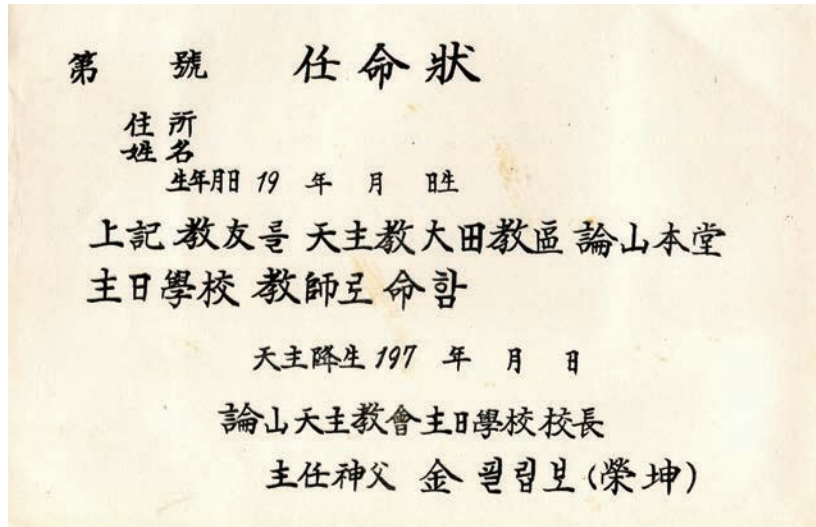 第 號 任命狀
住所
姓名
生年月日 19 年 月 日生
上記 教友를 天主教大田教區 論山本堂
主日學校 教師로 命함
天主降生 197 年 月 日
論山天主教會主日學校校長
主任神父 金 필립보 (榮坤)